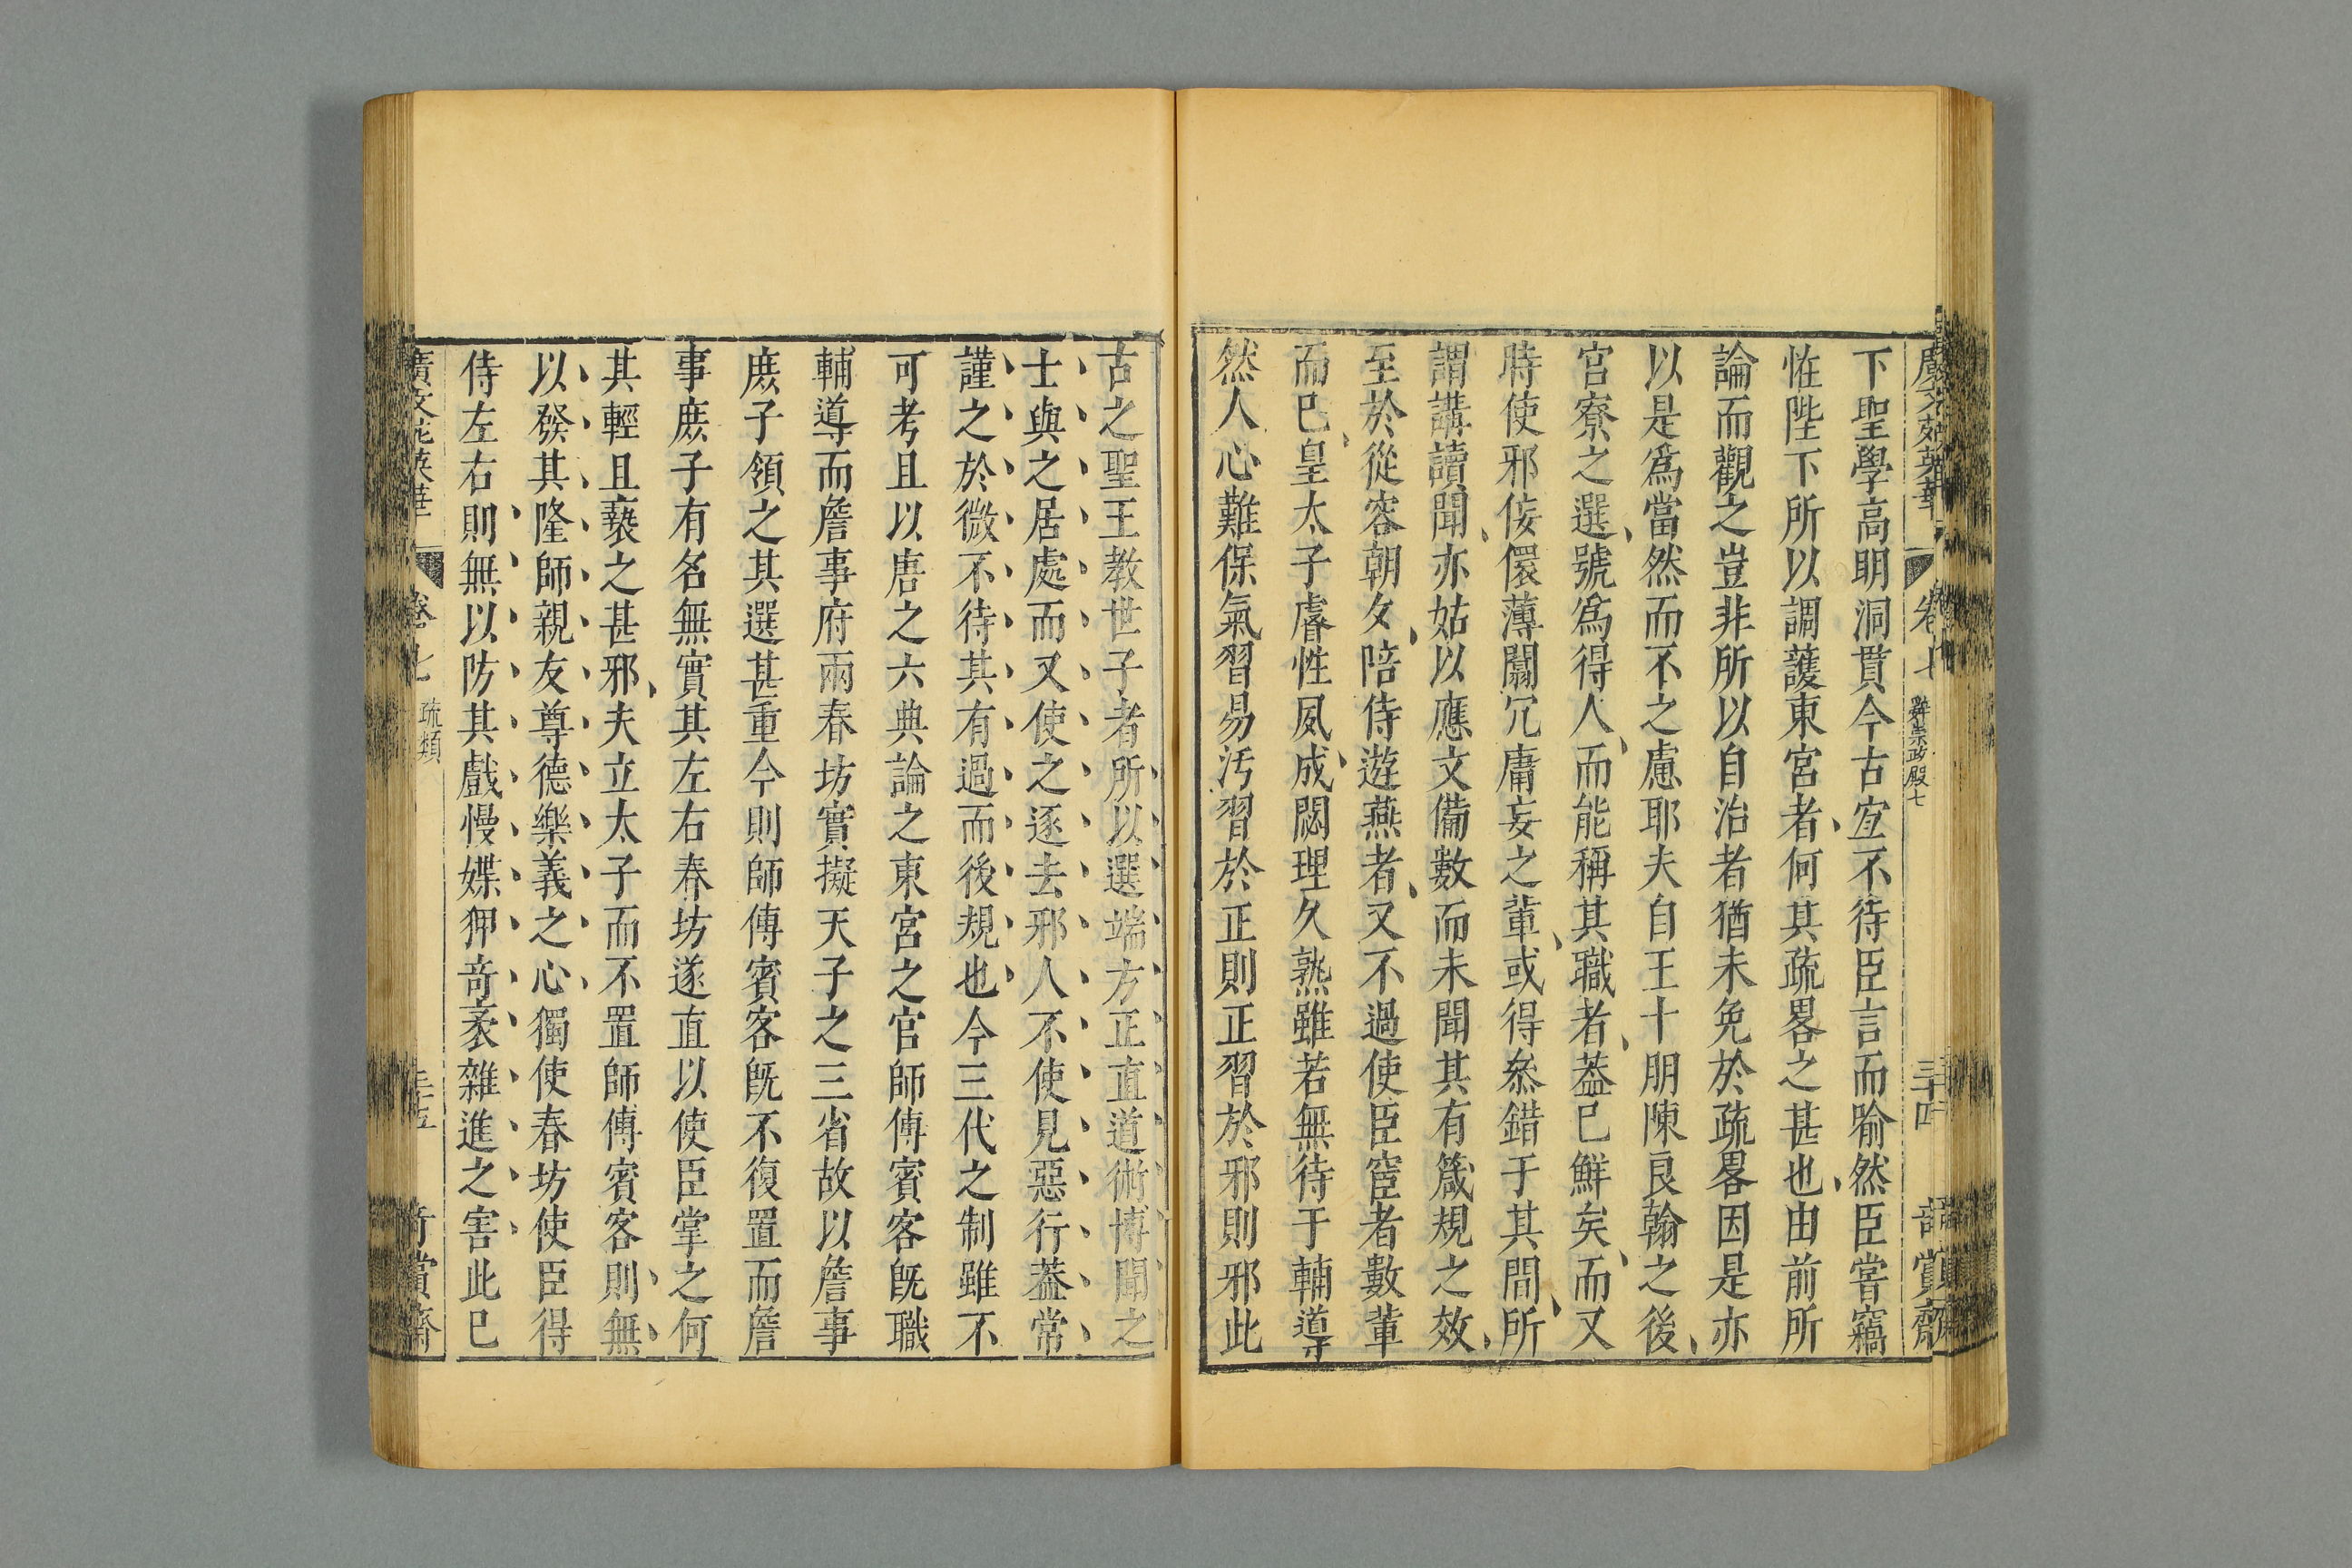 廣文苑英華
卷七
辭崇政殿七
三十四
奇賞齋
下聖學高明洞貫今古宜不待臣言而喻然臣嘗竊
恠陛下所以調護東宮者何其疏畧之甚也由前所
論而觀之豈非所以自治者猶未免於疏畧因是亦
以是爲當然而不之慮耶夫自王十朋陳良翰之後
官寮之選號爲得人而能稱其職者葢已鮮矣而又
時使邪佞儇薄闒冗庸妄之輩或得叅錯于其間所
謂講讀聞亦姑以應文備數而未聞其有箴規之效
至於從容朝夕陪侍遊燕者又不過使臣宦者數輩
而已皇太子睿性夙成閱理久熟雖若無待于輔導
然人心難保氣習易汚習於正則正習於邪則邪此
古之聖王教世子者所以選端方正直道術博聞之
士與之居處而又使之逐去邪人不使見惡行葢常
謹之於微不待其有過而後規也今三代之制雖不
可考且以唐之六典論之東宮之官師傅賓客旣職
輔導而詹事府兩春坊實擬天子之三省故以詹事
庶子領之其選甚重今則師傅賓客旣不復置而詹
事庶子有名無實其左右春坊遂直以使臣掌之何
其輕且褻之甚邪夫立太子而不置師傅賓客則無
以發其隆師親友尊德樂義之心獨使春坊使臣得
侍左右則無以防其戲慢媟狎奇袤雜進之害此已
廣文苑英華
卷七
疏類
三十五
奇賞齋